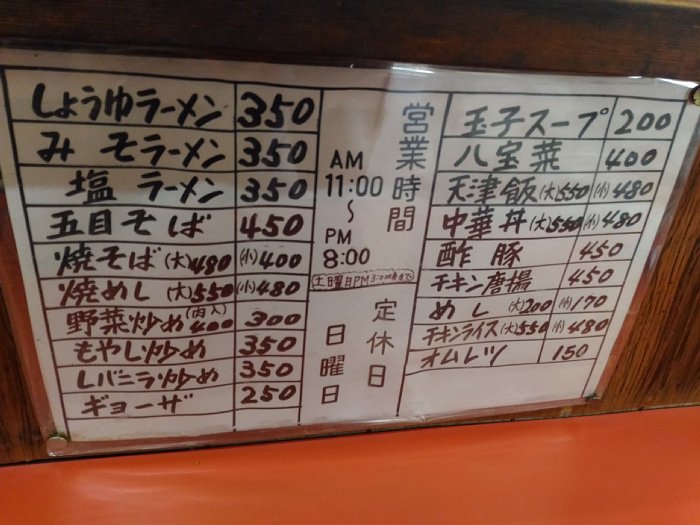 しょうゆラーメン 350
みそラーメン 350
塩ラーメン 350
五目そば 450
焼そば(大)480 (小)400
焼めし(大)550 (小)480
野菜炒め(肉入)400 300
もやし炒め 350
レバニラ炒め 350
ギョーザ 250
営業時間
AM
11:00
〜
PM
8:00
土曜日PM3:00頃まで
定休日
日曜日
玉子スープ 200
八宝菜 400
天津飯(大)550 (小)480
中華丼(大)550 (小)480
酢豚 450
チキン唐揚 450
めし (大)200 (小)170
チキンライス(大)550 (小)480
オムレツ 150